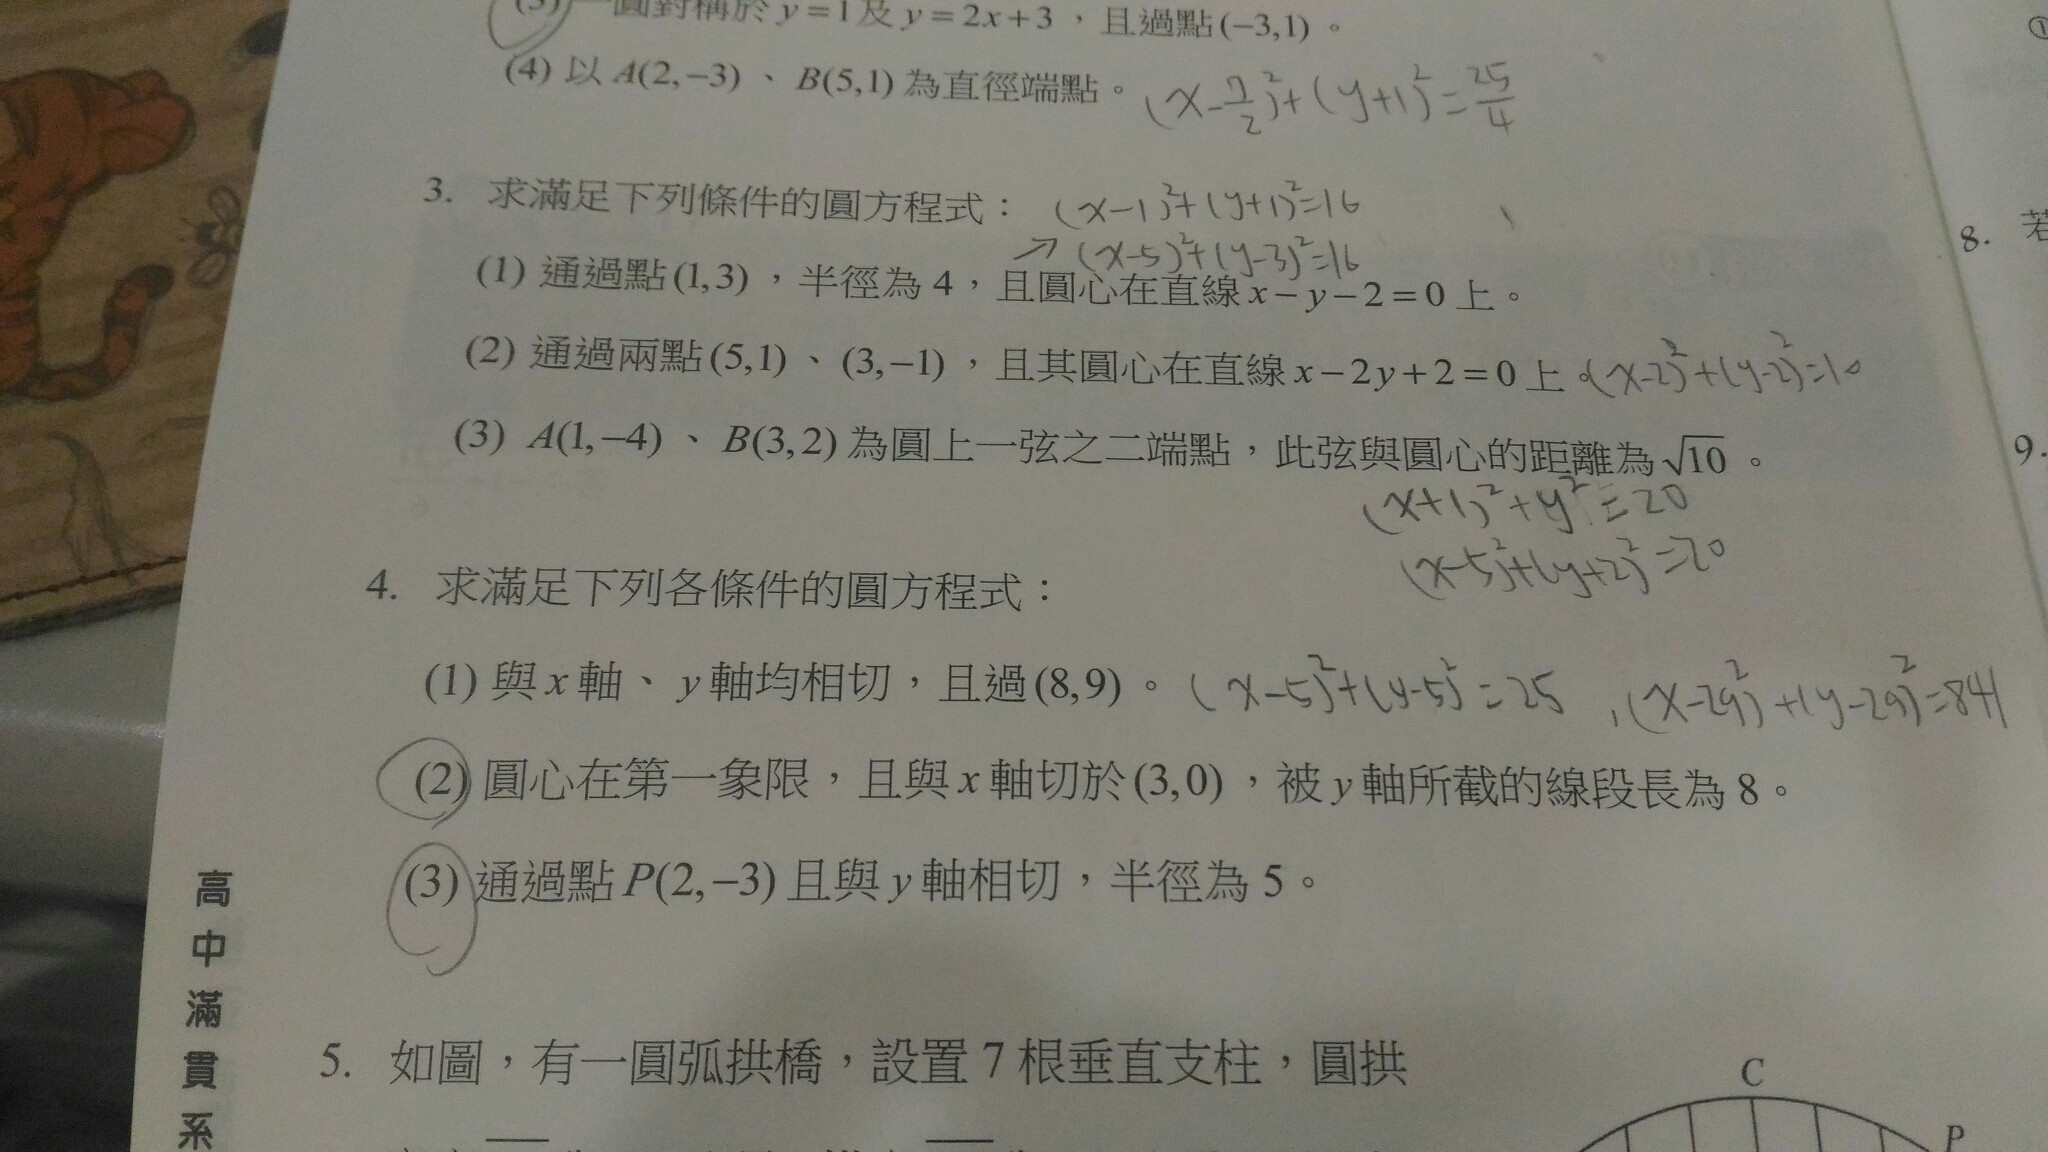 (3) 一圓對稱於 y=1及 y=2x+3，且過點(−3,1)。
(4) 以 A(2,−3)、B(5,1) 為直徑端點。 (x-7/2)²+(y+1)²=25/4
3. 求滿足下列條件的圓方程式： (x-1)²+(y+1)²=16
→ (x-5)²+(y-3)²=16
(1) 通過點(1,3)，半徑為 4，且圓心在直線 x−y−2=0 上。
(2) 通過兩點(5,1)、(3,−1)，且其圓心在直線 x−2y+2=0 上。(x-2)²+(y-2)²=10
(3) A(1,−4)、B(3,2) 為圓上一弦之二端點，此弦與圓心的距離為√10。
(x+1)²+y²=20
(x-5)²+(y+2)²=20
4. 求滿足下列各條件的圓方程式：
(1) 與 x 軸、y 軸均相切，且過(8,9)。 (x-5)²+(y-5)²=25 , (x-29)²+(y-29)²=841
(2) 圓心在第一象限，且與 x 軸切於(3,0)，被 y 軸所截的線段長為 8。
(3) 通過點 P(2,−3) 且與 y 軸相切，半徑為 5。
5. 如圖，有一圓弧拱橋，設置 7 根垂直支柱，圓拱
C
P
高中滿貫系
①
8. 若
9.